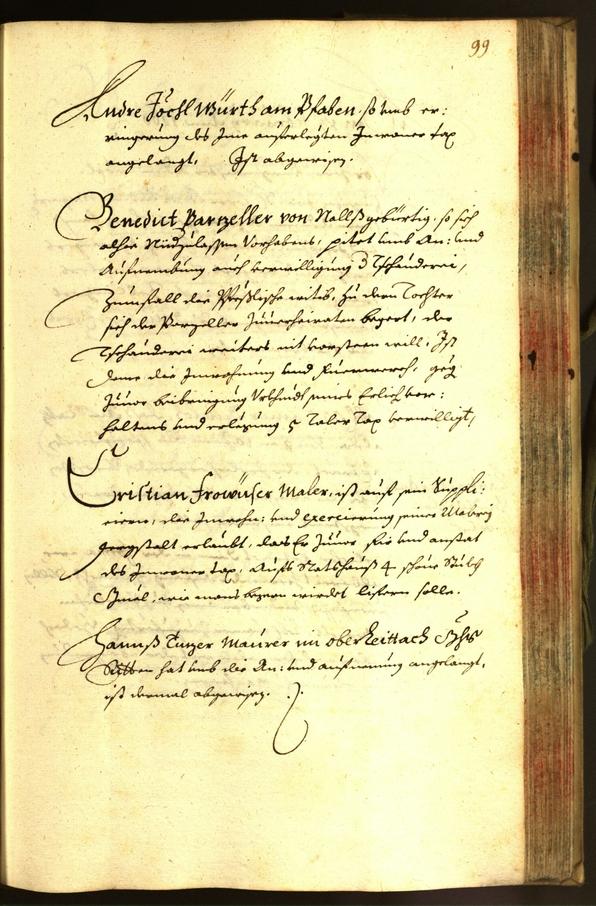 99
Andre Jöchl Würth am Pfaben, so umb er:
ringerung des Ime auferlegten Inwoner tax
angelangt, Ist abgewisen.
Benedict Parzeller von Nallß gebürtig, so sich
alhie Nidzulassen Vorhabens, pitet umb An: und
Aufnembung auch verwilligung 3 Tschauderei,
Zumfall die Wittib, zu dern Tochter
sich der Parzeller Zuverheiraten begert, der
Tschauderei weiters nit vorsteen will, Ist
deme die Inwohnung und Feuerwerch, geg
Zuvor beibringung Urkhundt seines Erlichver:
haltens und erlegung 5 Taler Tax verwilligt,
Cristian Frowiser Maler, ist auf sein Suppli:
ciern, die Inwohn: und exercierung seiner Malerej
dergstalt erlaubt, das Er Zuvor für und anstat
des Inwoner tax, Aufs Rathauß 4 schöne Stuckh
Gmäl, wie mans begern wirdet lifern solle.
Hannß Tuzer Maurer im oberReittach
hat umb die An: und aufnemung angelangt,
ist dermal abgewisen.